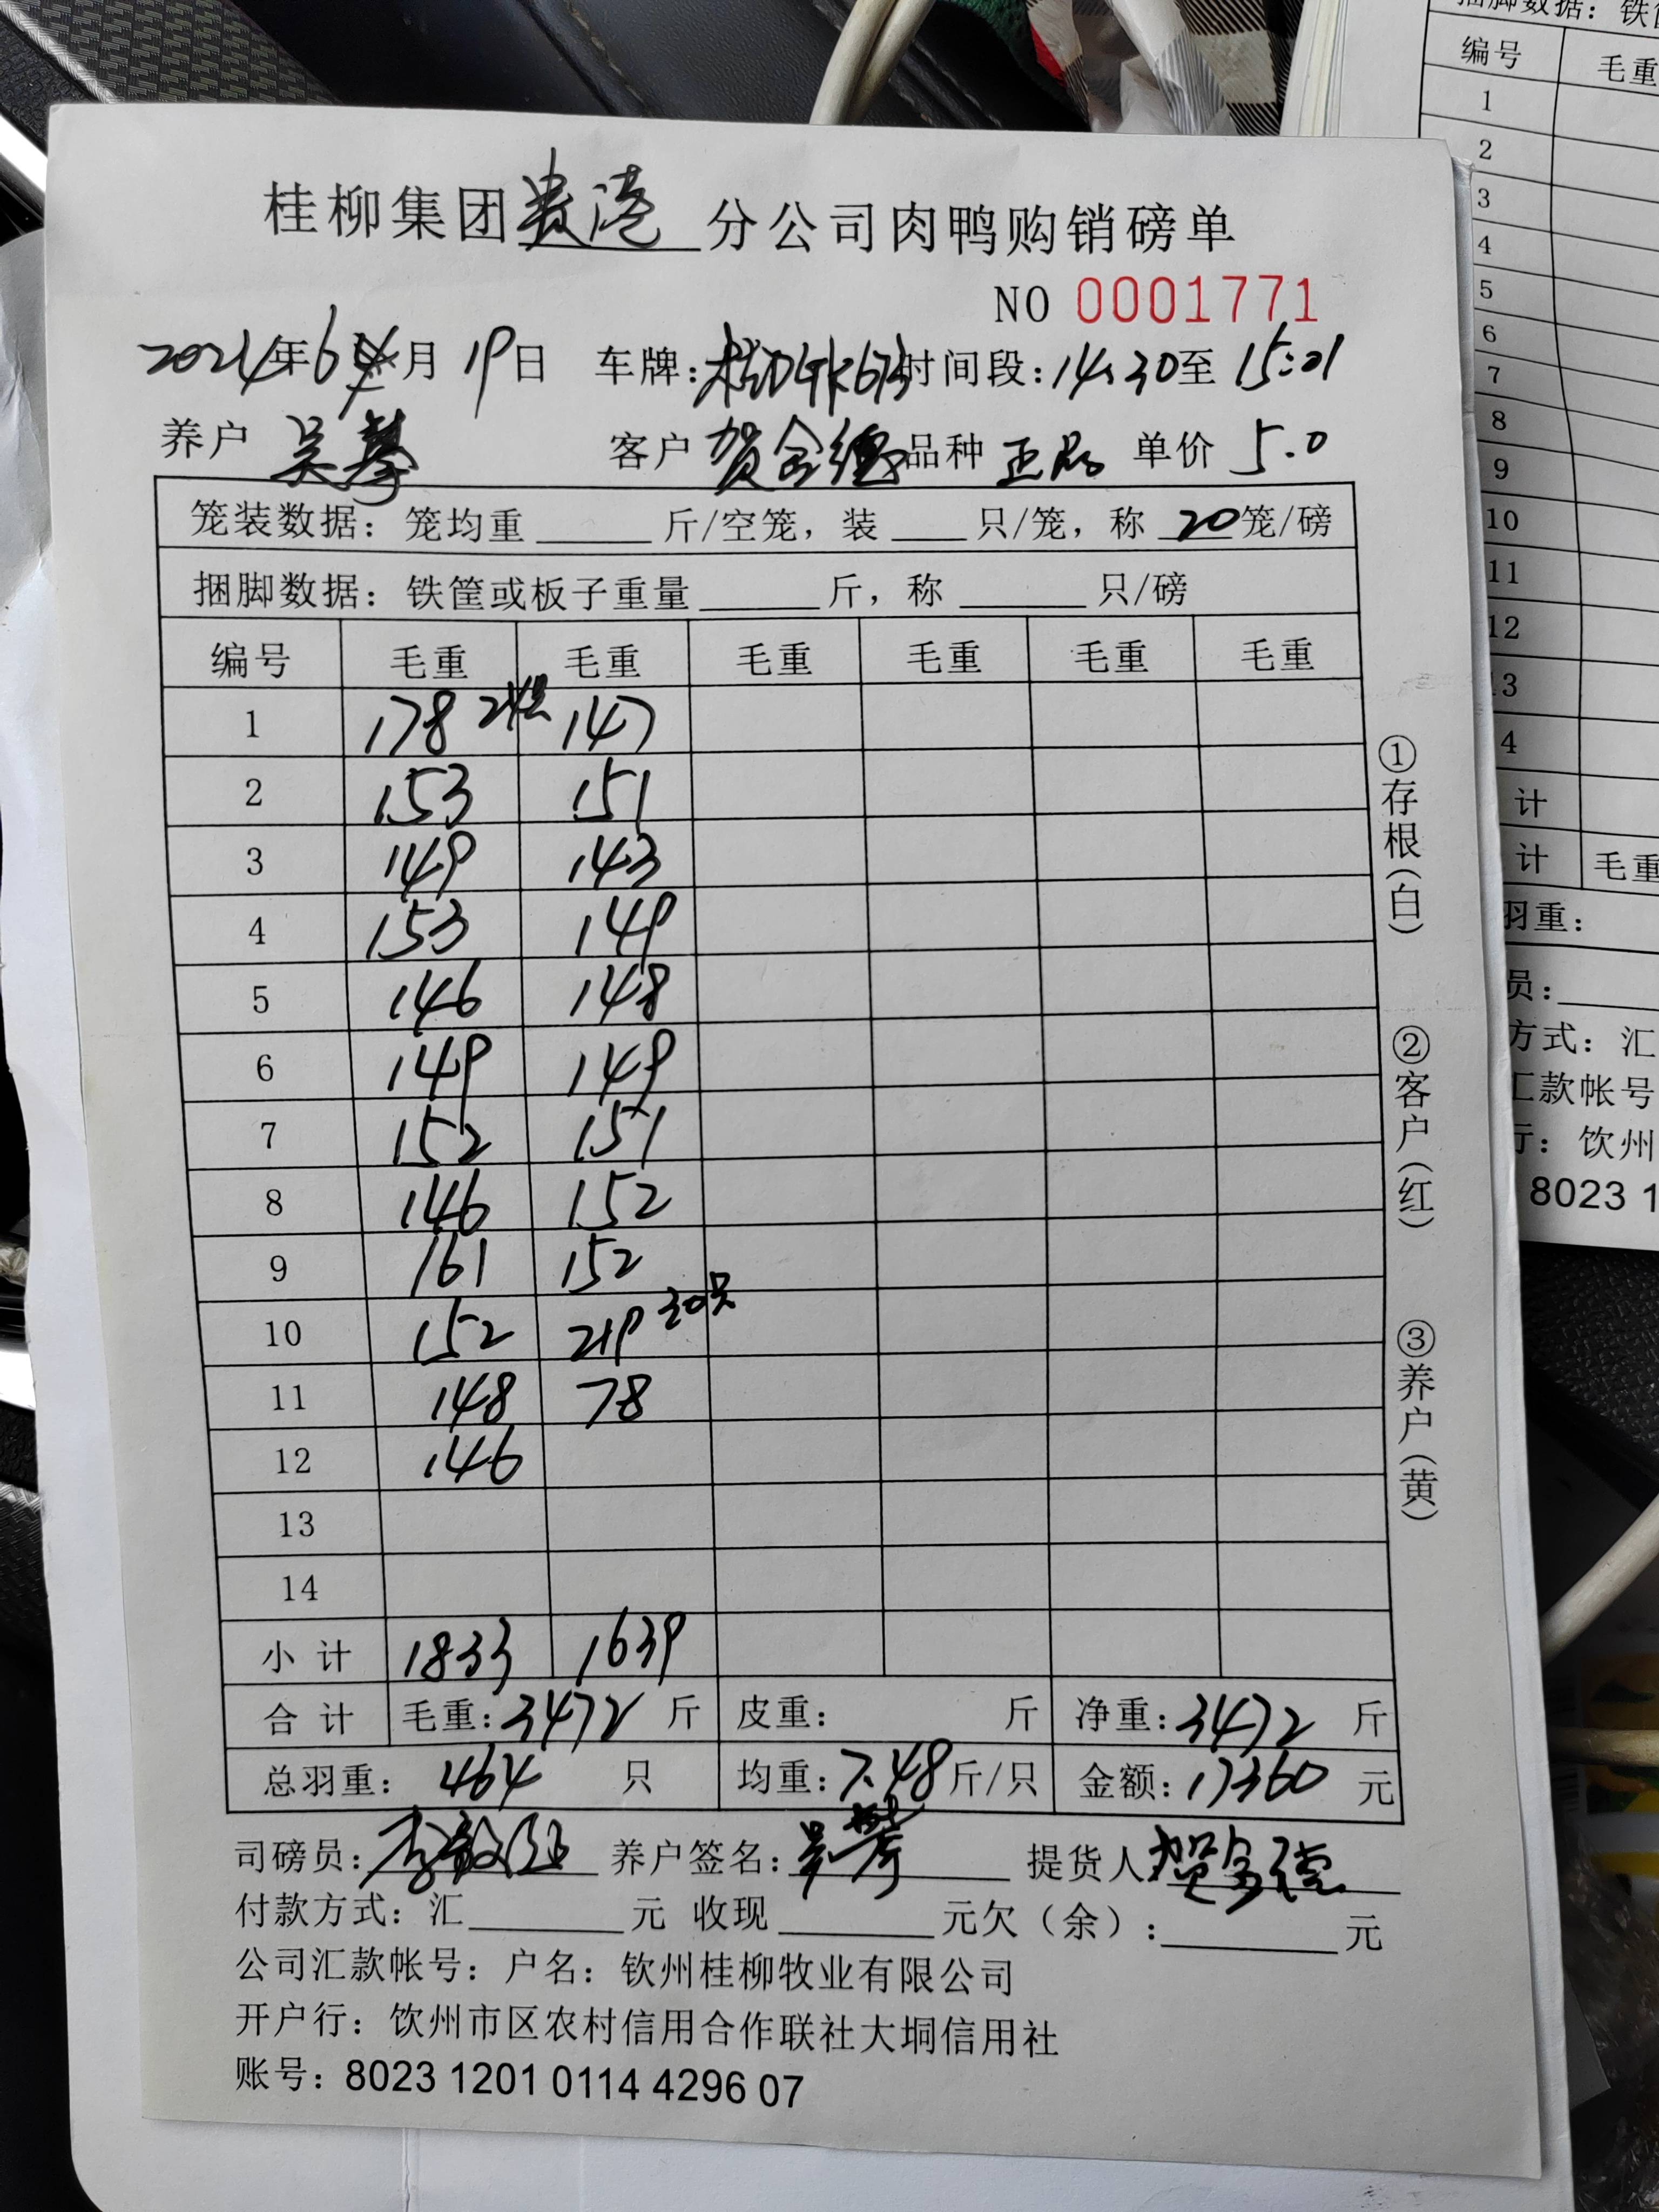 桂柳集团贵港分公司肉鸭购销磅单
NO 0001771
2024年6月19日 车牌: 时间段:14:30至15:01
养户 吴 客户 贺金德 品种 正品 单价 5.0
笼装数据:笼均重 斤/空笼,装 只/笼,称 20笼/磅
捆脚数据:铁筐或板子重量 斤,称 只/磅
编号 毛重 毛重 毛重 毛重 毛重 毛重
1 178 24只 147
2 153 151
3 149 143
4 153 149
5 146 148
6 149 149
7 152 151
8 146 152
9 161 152
10 152 219 30只
11 148 78
12 146
13
14
小计 1833 1639
合计 毛重:3472 斤 皮重: 斤 净重:3472 斤
总羽重: 464 只 均重:7.48斤/只 金额:17360 元
司磅员: 养户签名:吴 提货人 贺金德
付款方式:汇 元 收现 元欠(余): 元
公司汇款帐号:户名:钦州桂柳牧业有限公司
开户行:钦州市区农村信用合作联社大垌信用社
账号:8023 1201 0114 4296 07
①存根(白) ②客户(红) ③养户(黄)
编号 毛重
1
2
3
4
5
6
7
8
9
10
11
12
13
4
计
计 毛重
羽重:
员:
方式:汇
汇款帐号
行:钦州
8023 1